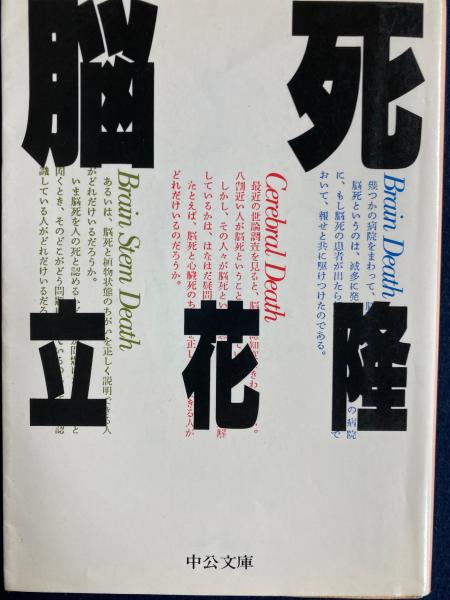 脳死
Brain Death
幾つかの病院をまわって、
脳死というのは、滅多に発 の病院
に、もし脳死の患者が出たら で
おいて、報せと共に駆けつけたのである。
Cerebral Death
最近の世論調査を見ると、脳
八割近い人が脳死ということ
しかし、その人々が脳死とい 解
しているかは、はなはだ疑問
たとえば、脳死と心臓死のち 正し きる人が
どれだけいるのだろうか。
Brain Stem Death
あるいは、脳死と植物状態のちがいを正しく説明できる人
がどれだけいるだろうか。
いま脳死を人の死と認めるか、 が問題に と
聞くとき、そのどこがどう問題 ているの 認
識している人がどれだけいるだろ
立花隆
中公文庫